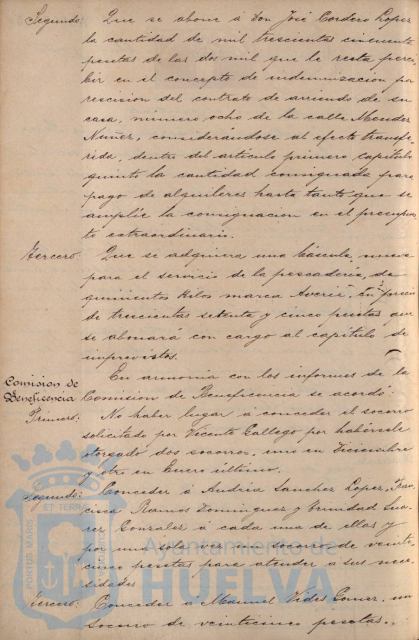 Segundo: Que se abone á Don José Cordero Lopez
la cantidad de mil trescientas cincuenta
pesetas de las dos mil que le resta perci-
bir en el concepto de indemnizacion por
rescision del contrato de arriendo de su
casa, número ocho de la calle Mendez
Nuñez, considerándose al efecto transfe-
rida, dentro del artículo primero capítulo
quinto la cantidad consignada para
pago de alquileres hasta tanto que se
amplíe la consignacion en el presupues-
to extraordinario.
Tercero: Que se adquiera una báscula nueva
para el servicio de la pescadería, de
quinientos kilos marca Averis, en precio
de trescientas setenta y cinco pesetas que
se abonará con cargo al capítulo de
imprevistos.
En armonia con los informes de la
Comision de
Beneficencia
Comision de Beneficencia se acordó:
Primero: No haber lugar á conceder el socorro
solicitado por Vicente Gallego por habérsele
otorgado dos socorros, uno en Diciembre
y otro en Enero último.
Segundo: Conceder á Andrea Sanchez Lopez, Fran-
cisca Ramos Dominguez y Trinidad Sua-
rez Gonzalez á cada una de ellas y
por una sola vez un socorro de veinti-
cinco pesetas para atender a sus nece-
sidades
Tercero: Conceder á Manuel Vides Gomez, un
socorro de veinticinco pesetas.
PORTUS MARIS ET TERRÆ
Ayuntamiento de
HUELVA